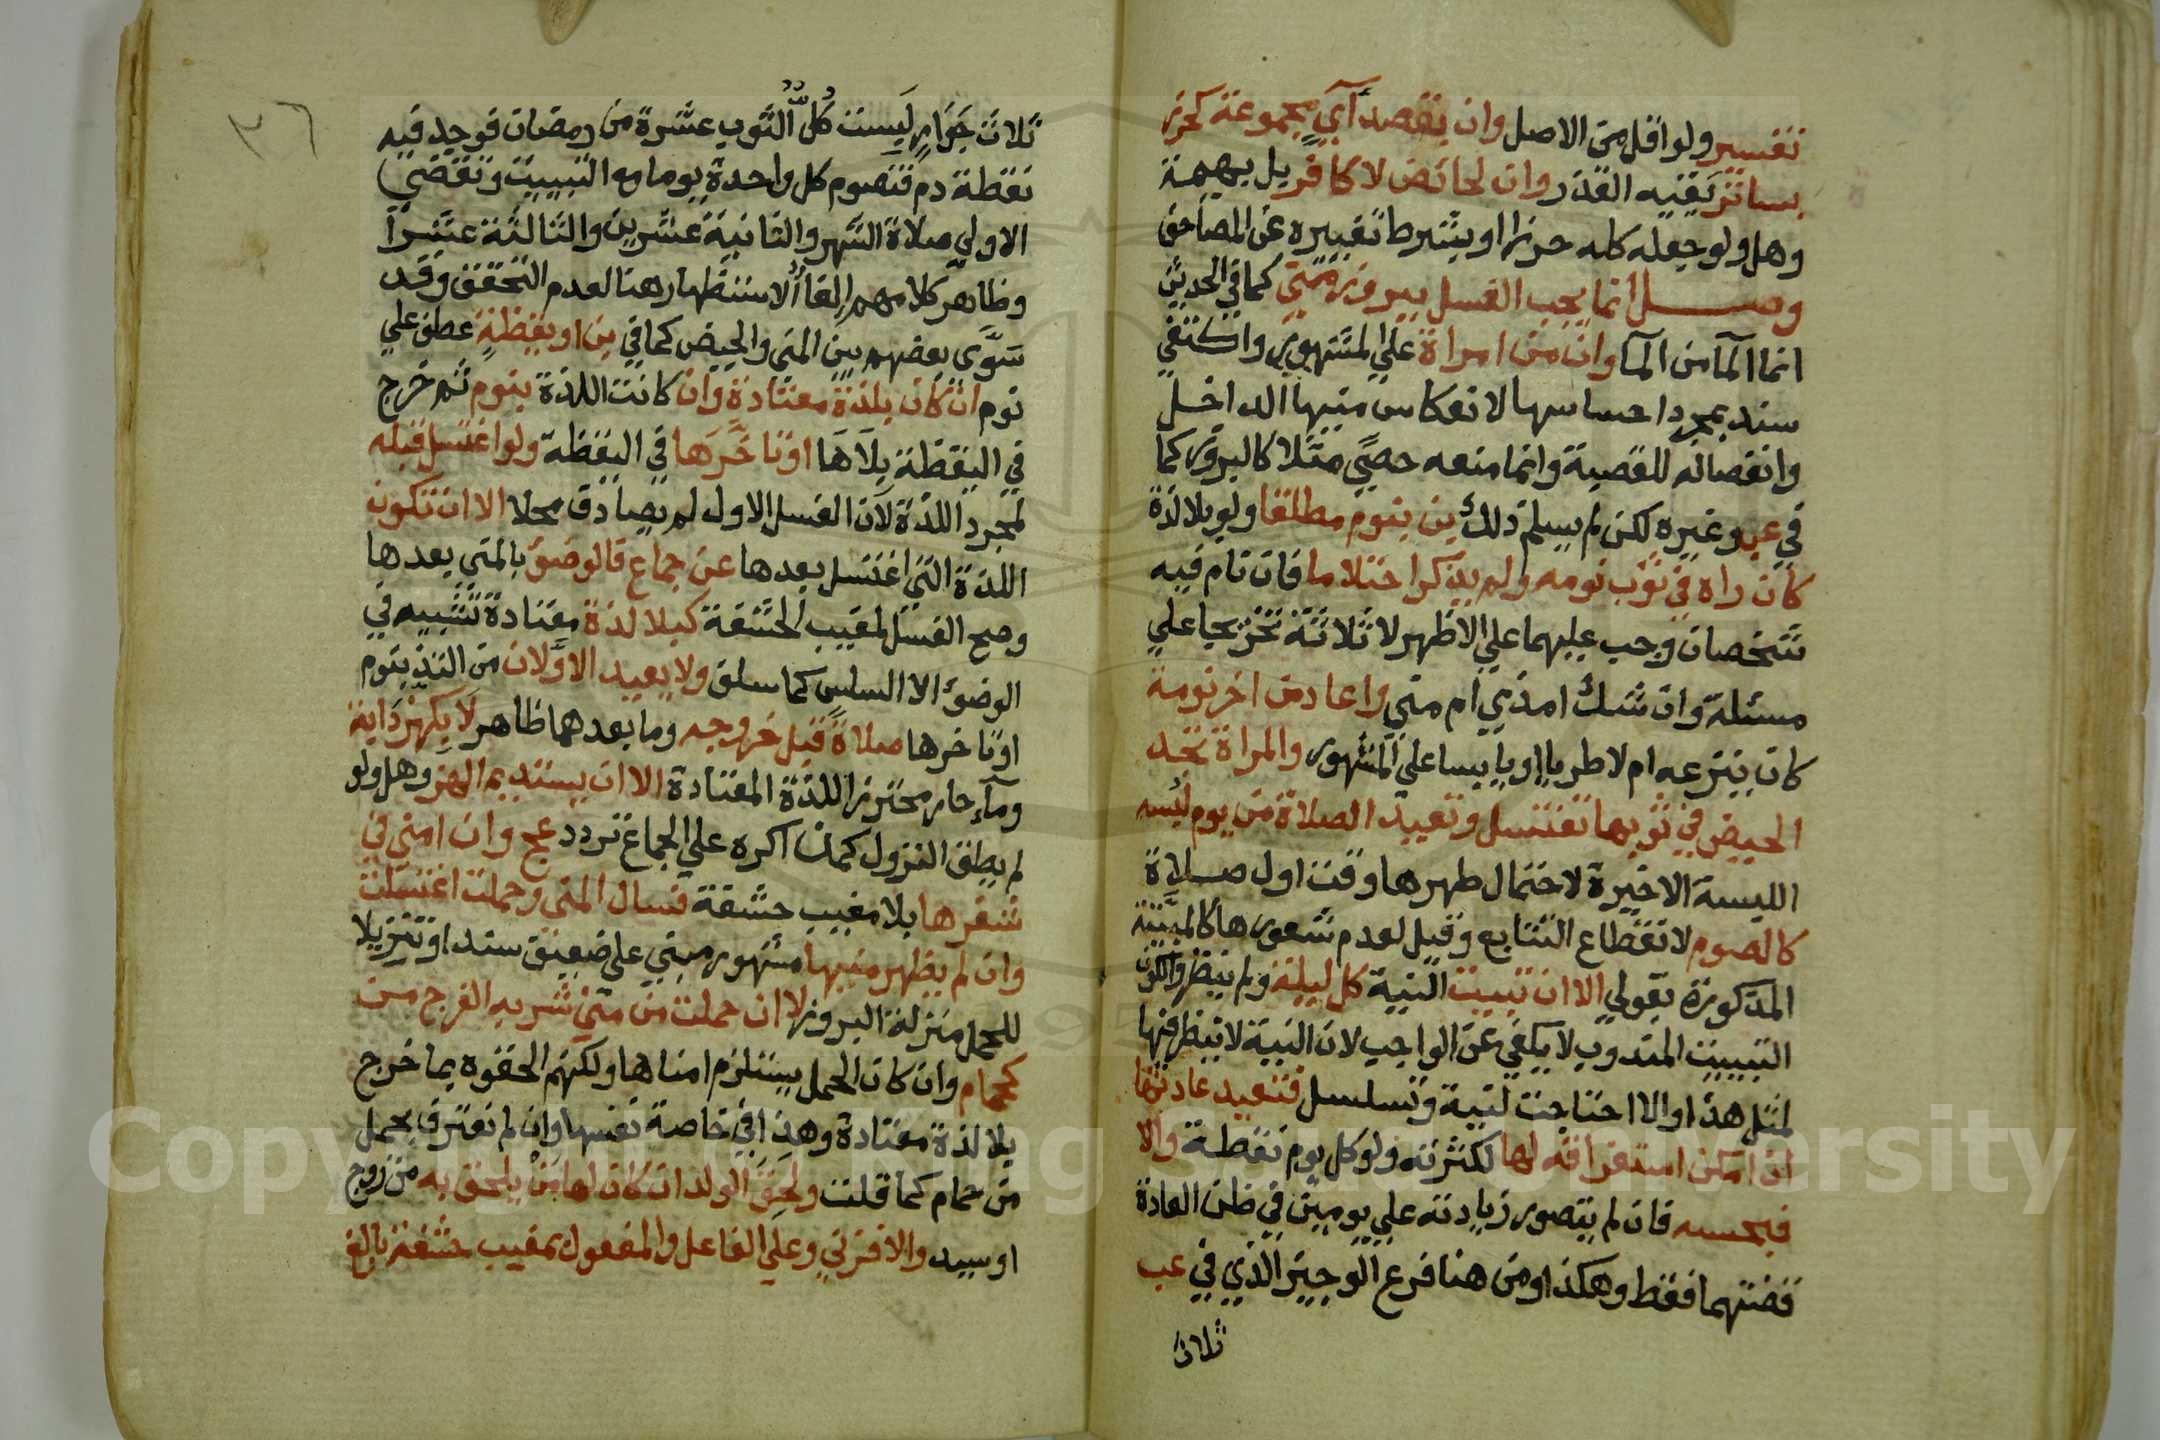 تفسير ولو اقل من الاصل وان بقصد آي مجموعة كحرز
بساتر يقيه القذر وان لحائض لا كافر بل بهيمة
وهل ولو جعله كله حرزا او يشترط تغييره عن المصاحف
وصل انما يجب الغسل ببروز مني كما في الحديث
انما المآ من المآ وان من امراة علي المشهور واكتفي
سند بمجرد احساسها لانعكاس منيها الداخل
وانفصاله للقصبة وانما منعه حصي مثلا كالبروز كما
في عب وغيره لكن لم يسلم ذلك بن بنوم مطلقا ولو بلا لذة
كان راه في ثوب نومه ولم يذكر احتلاما فان نام فيه
شخصان وجب عليهما علي الاظهر لا ثلاثة تخريجا علي
مسئلة وان شك امذي ام مني واعاد من اخر نومة
كان ينزعه ام لا طريا او يابسا علي المشهور والمراة تجد
الحيض في ثوبها تغتسل وتعيد الصلاة من يوم لبسه
اللبسة الاخيرة لاحتمال طهرها وقت اول صلاة
كالصوم لانقطاع التتابع وقيل لعدم شعورها كالمبيتة
المذكورة بقولي الا ان تبيت النية كل ليلة ولم ينظروا لكون
التبييت المندوب لا يكفي عن الواجب لان النية لا ينظر فيها
لمثل هذا والا احتاجت لنية وتسلسل فتعيد عادتها
ان امكن استغراقه لها لكثرته ولو كل يوم نقطة والا
فبحسبه فان لم يتصور زيادته علي يومين في ظن العادة
قضتهما فقط وهكذا ومن هنا فرع الوجيز الذي في عب
ثلاث
٣٦
ثلاث جوار لبست كل الثوب عشرة من رمضان فوجد فيه
نقطة دم فتصوم كل واحدة يوما مع التبييت وتقضي
الاولي صلاة الشهر والثانية عشرين والثالثة عشرا
وظاهر كلامهم الغا الاستظهار هنا لعدم التحقق وقد
سوي بعضهم بين المني والحيض كما في بن او بيقظة عطف علي
نوم ان كان بلذة معتادة وان كانت اللذة بنوم ثم خرج
في اليقظة بلاها او تاخر عنها في اليقظة ولو اغتسل قبله
لمجرد اللذة لان الغسل الاول لم يصادق محلا الا ان تكون
اللذة التي اغتسل بعدها عن جماع فالوضؤ بالمني بعدها
وصح الغسل لمغيب الحشفة كبلا لذة معتادة تشبيه في
الوضؤ الا السلس كما سلف ولا يعيد الاولان من التذ بنوم
او تاخرها صلاة قبل خروجه وما بعدهما ظاهر لا بكهز دابة
ومآء حار محترز اللذة المعتادة الا ان يستديم الهز وهل ولو
لم يطق النزول كمن اكره علي الجماع تردد عج وان امني في
شفرها بلا مغيب حشفة فسال المني وحملت اغتسلت
وان لم يظهر منيها مشهور مبني علي ضعيف سند او تنزيلا
للحمل منزلة البروز لا ان حملت من مني شربه الفرج من
كحمام وان كان الحمل يستلزم امناها ولكنهم الحقوه بما خرج
بلا لذة معتادة وهذا في خاصة نفسها وان لم نعترف بحمل
من حمام كما قلت ولحق الولد ان كان لها من يلحق به من زوج
او سيد والا فزني وعلي الفاعل والمفعول بمغيب حشفة بالغ